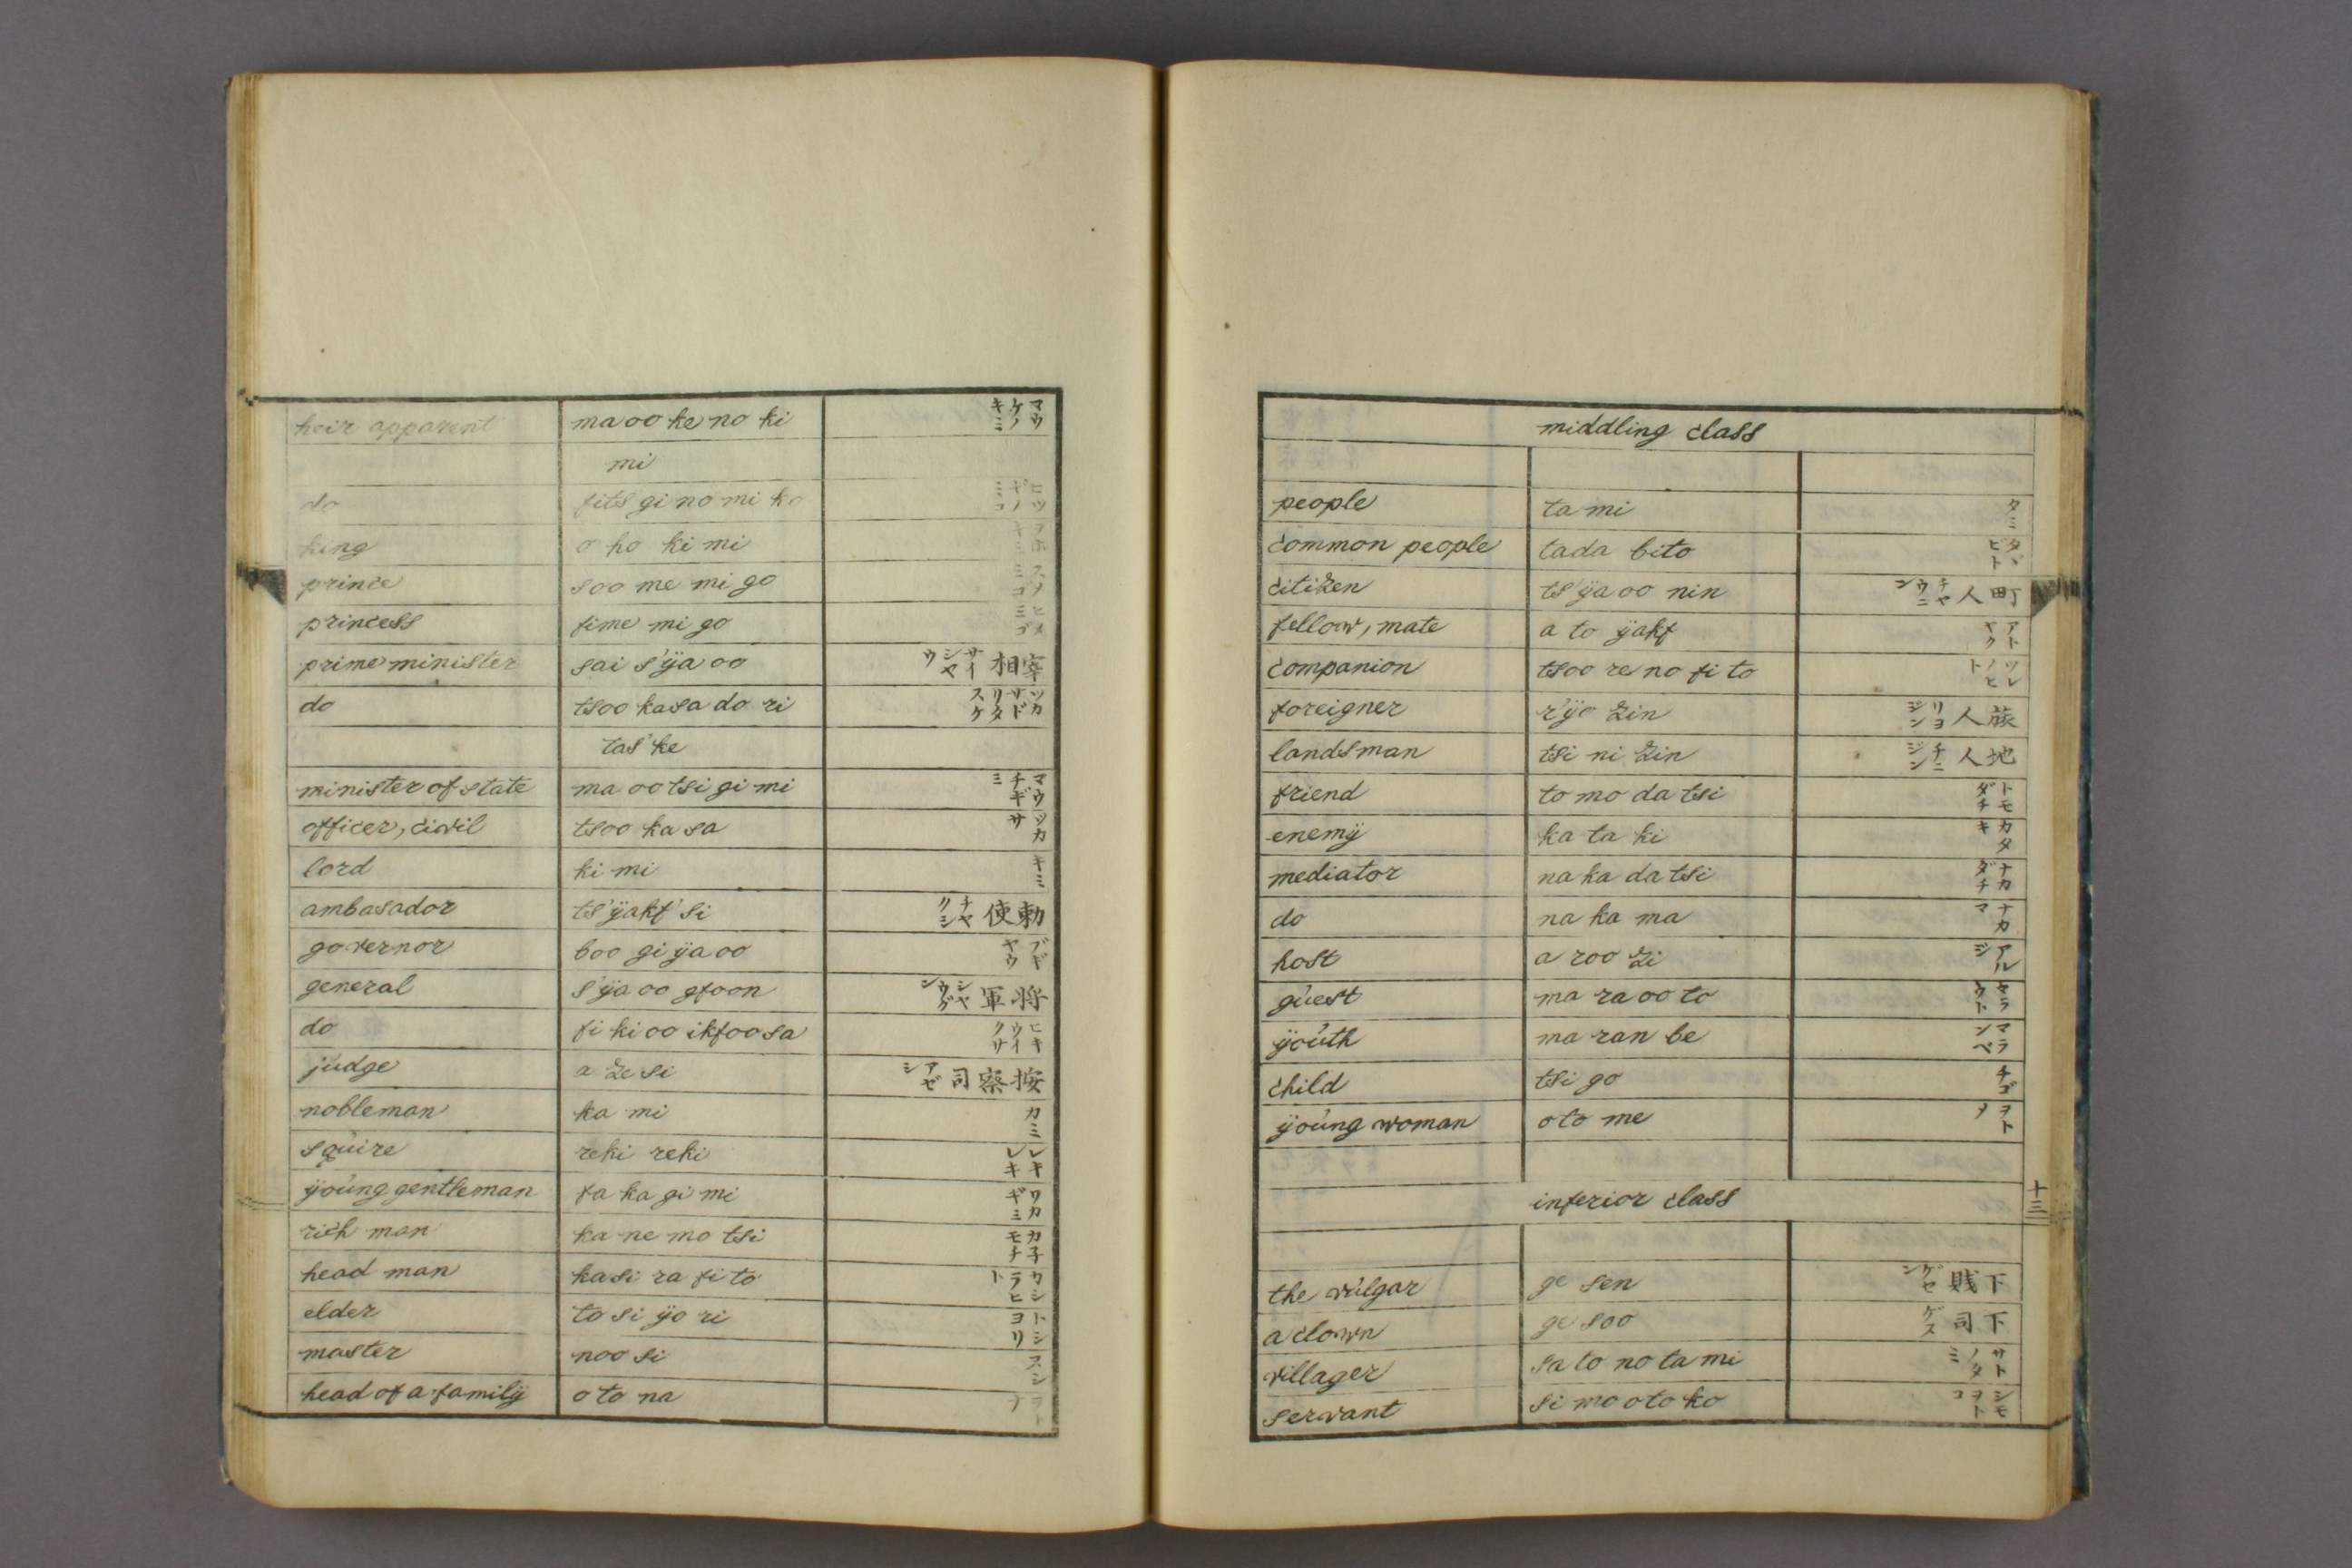 heir apparent ma oo ke no ki マウケノキミ
mi
do fits gi no mi ko ヒツギノミコ
king o ho ki mi ヲホキミ
prince soo me mi go スメミゴ
princess fime mi go ヒメミゴ
prime minister sai s'ÿa oo 宰相 サイシヤウ
do tsoo kasa do ri ツカサドリタスケ
tas'ke
minister of state ma oo tsi gi mi マウチギミ
officer, civil tsoo ka sa ツカサ
lord ki mi キミ
ambasador ts'ÿakf'si 勅使 チヤクシ
governor boo gi ÿa oo ブギヤウ
general s'ÿa oo gfoon 将軍 シヤウグン
do fi ki oo ikfoo sa ヒキウイクサ
judge a ze si 按察司 アゼシ
nobleman ka mi カミ
squire reki reki レキレキ
ÿoúng gentleman fa ka gi mi ワカギミ
rich man ka ne mo tsi カ子モチ
head man kasi ra fi to カシラヒト
elder to si ÿo ri トシヨリ
master noo si ヌシ
head of a familÿ o to na ヲトナ
middling class
people ta mi タミ
common people tada bito タヾビト
citizen ts'ÿa oo nin 町人 チヤウニン
fellow, mate a to ÿakf アトヤク
companion tsoo re no fi to ツレノヒト
foreigner r'ÿo zin 旅人 リヨジン
landsman tsi ni zin 地人 チニジン
friend to mo da tsi トモダチ
enemÿ ka ta ki カタキ
mediator na ka da tsi ナカダチ
do na ka ma ナカマ
host a roo zi アルジ
gúest ma ra oo to マラウト
ÿoúth ma ran be マランベ
child tsi go チゴ
ÿoúng woman oto me ヲトメ
inferior class
十三
the vúlgar ge sen 下賎 ゲセン
a clown ge soo 下司 ゲス
villager sa to no ta mi サトノタミ
servant si mo o to ko シモヲトコ